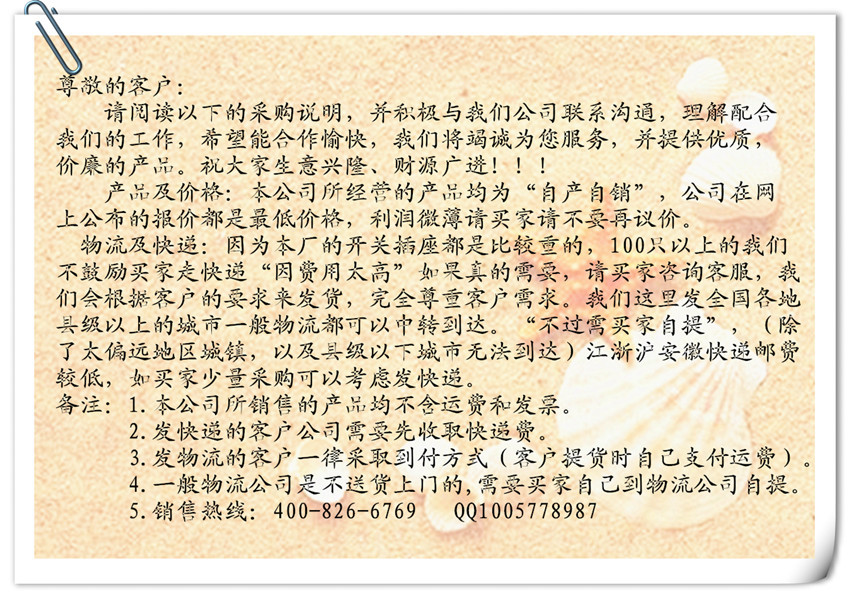 尊敬的客户：
请阅读以下的采购说明，并积极与我们公司联系沟通，理解配合
我们的工作，希望能合作愉快，我们将竭诚为您服务，并提供优质，
价廉的产品。祝大家生意兴隆、财源广进！！！
产品及价格：本公司所经营的产品均为“自产自销”，公司在网
上公布的报价都是最低价格，利润微薄请买家请不要再议价。
物流及快递：因为本厂的开关插座都是比较重的，100只以上的我们
不鼓励买家走快递“因费用太高”如果真的需要，请买家咨询客服，我
们会根据客户的要求来发货，完全尊重客户需求。我们这里发全国各地
县级以上的城市一般物流都可以中转到达。“不过需买家自提”，（除
了太偏远地区城镇，以及县级以下城市无法到达）江浙沪安徽快递邮费
较低，如买家少量采购可以考虑发快递。
备注：1.本公司所销售的产品均不含运费和发票。
2.发快递的客户公司需要先收取快递费。
3.发物流的客户一律采取到付方式（客户提货时自己支付运费）。
4.一般物流公司是不送货上门的,需要买家自己到物流公司自提。
5.销售热线：400-826-6769 QQ1005778987